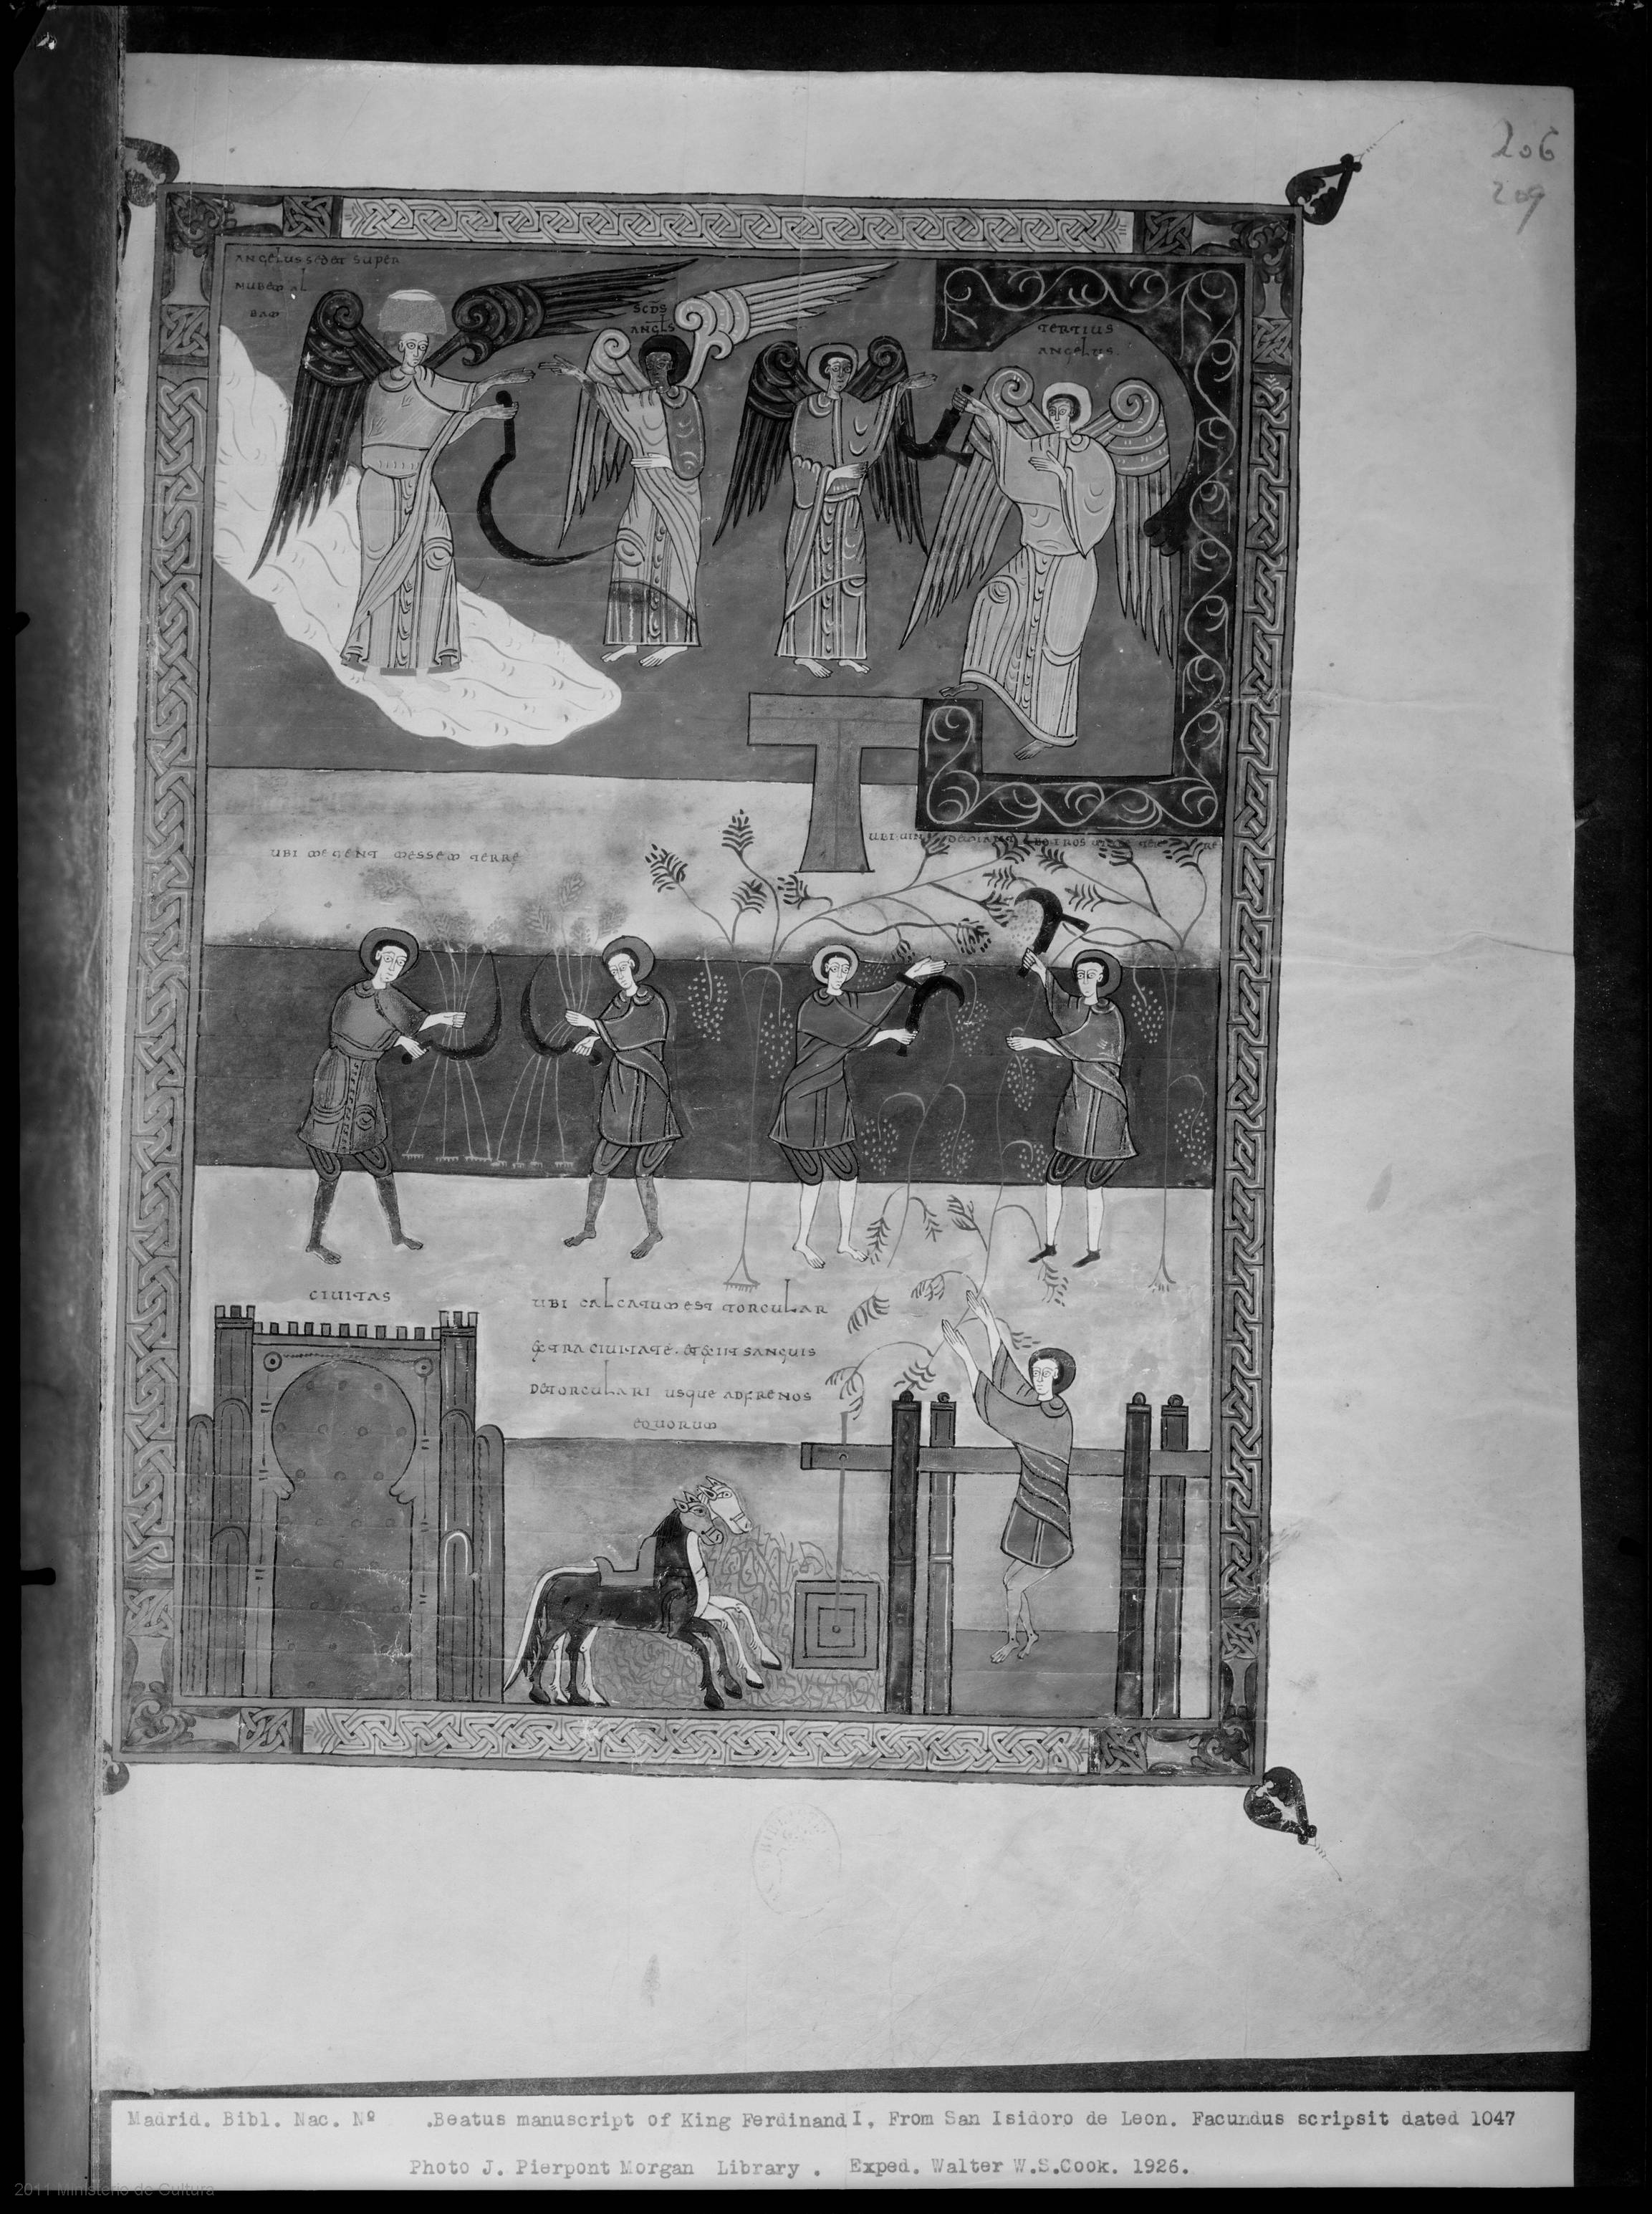 206
209
ANGELUS SEDET SUPER
NUBEM AL
BAM
SCDS
ANGLS
TERTIUS
ANGELUS
UBI METENT MESSEM TERRE
UBI UINDEMIANT BOTROS
CIUITAS
UBI CALCATUM EST TORCULAR
EXTRA CIUITATE. ET EXIIT SANGUIS
DE TORCULARI USQUE AD FRENOS
EQUORUM
Madrid. Bibl. Nac. Nº .Beatus manuscript of King Ferdinand I, From San Isidoro de Leon. Facundus scripsit dated 1047
Photo J. Pierpont Morgan Library . Exped. Walter W.S.Cook. 1926.
2011 Ministerio de Cultura